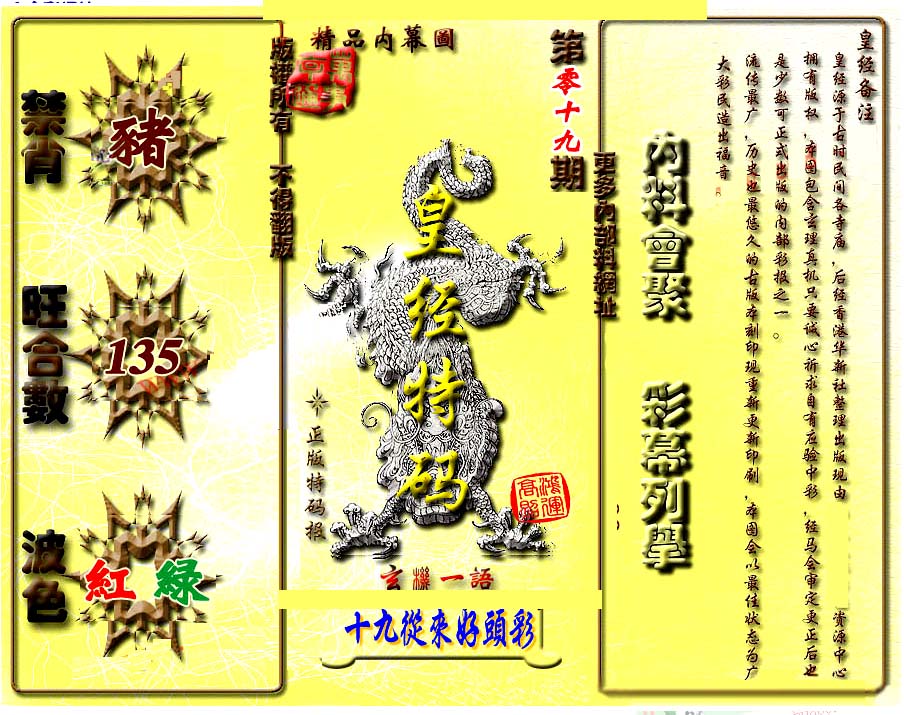 禁肖
豬
旺合數
135
波色
紅 綠
版權所有 不得翻版
精品内幕圖
第零十九期
皇经特码
正版特码报
鴻運高照
玄機一語
十九從來好頭彩
更多内部料網址
内料會聚
彩幕列學
皇经备注
皇经源于古时民间各寺庙,后经香港华新社整理出版现由 资源中心
拥有版权,本图包含玄理真机只要诚心祈求自有应验中彩,经马会审定更正后也
是少数可正式出版的内部彩报之一。
流传最广,历史也最悠久的古版本刻印现重新更新印刷,本图会以最佳状态为广
大彩民造出福音。